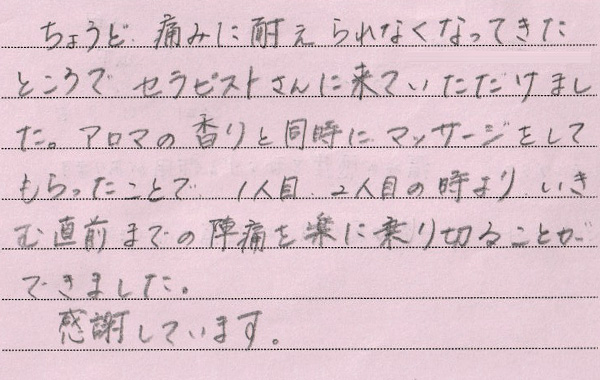 ちょうど 痛みに耐えられなくなってきた
ところで セラピストさんに来ていただけまし
た。アロマの香りと同時に マッサージをして
もらったことで 1人目、2人目の時より いき
む直前までの陣痛を楽に乗り切ることが
できました。
感謝しています。